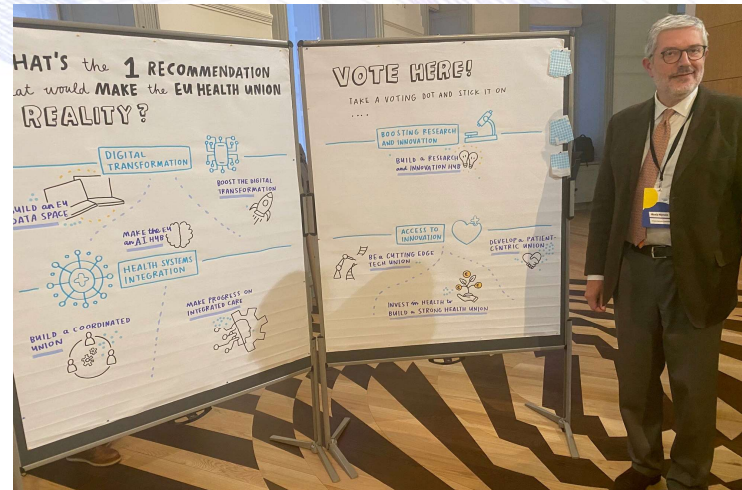 HAT'S the 1 RECOMMENDATION
at would MAKE the EU HEALTH UNION
REALITY?
DIGITAL
TRANSFORMATION
BUILD an EU
DATA SPACE
BOOST THE DIGITAL
TRANSFORMATION
MAKE the EU
an AI HUB
HEALTH SYSTEMS
INTEGRATION
MAKE PROGRESS ON
INTEGRATED CARE
BUILD a COORDINATED
UNION
VOTE HERE!
TAKE A VOTING DOT AND STICK IT ON
....
BOOSTING RESEARCH
AND INNOVATION
BUILD a RESEARCH
and INNOVATION HUB
ACCESS TO
INNOVATION
BE a CUTTING EDGE
TECH UNION
DEVELOP a PATIENT-
CENTRIC UNION
INVEST in HEALTH to
BUILD a STRONG HEALTH UNION